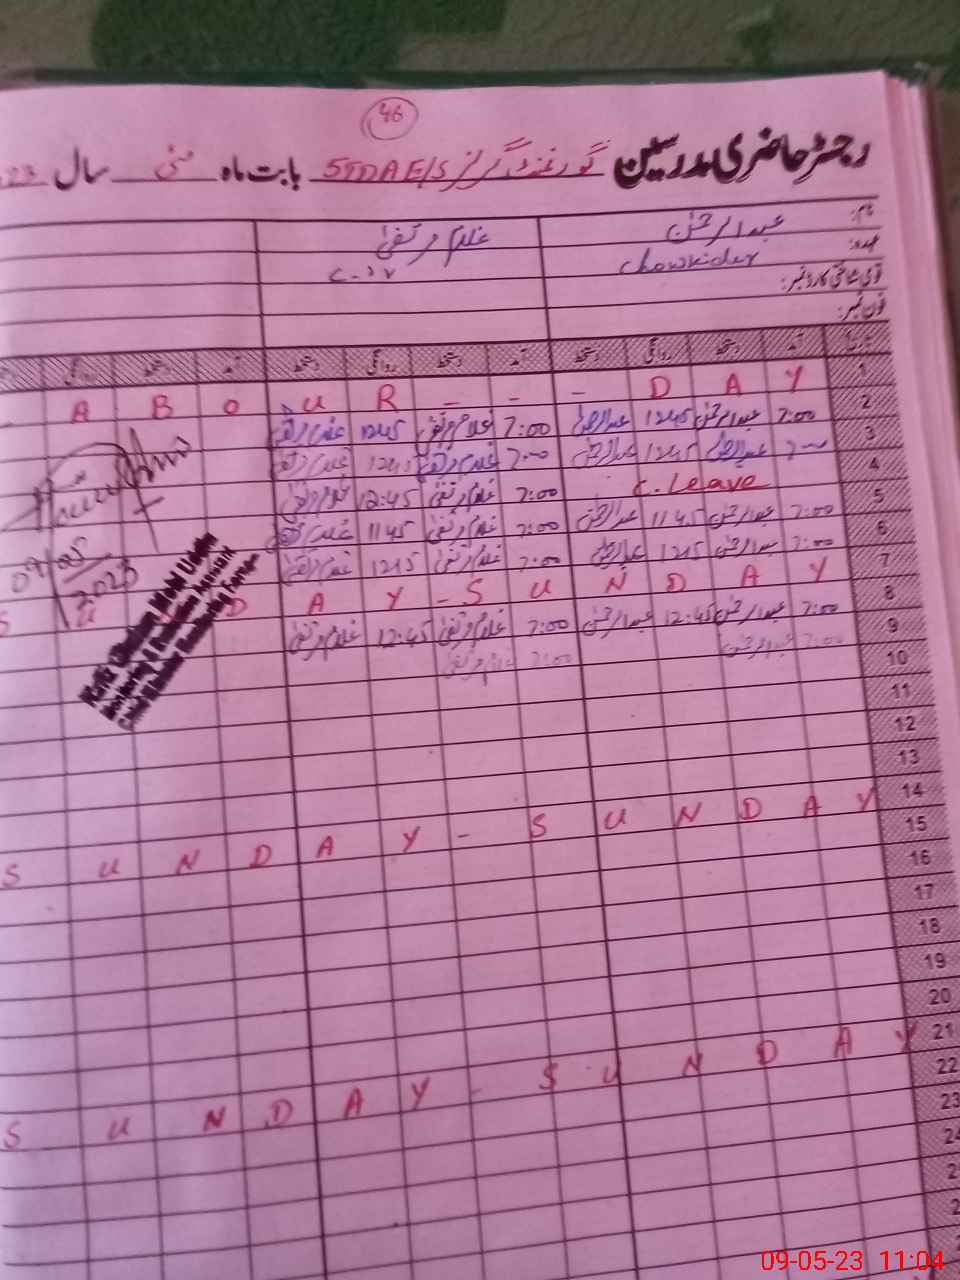 46
رجسٹر حاضری مدرسین گورنمنٹ گرلز بابت ماہ مئی سال
نام: عبدالرحمن غلام مرتضیٰ
عہدہ: Chowkider
قومی شناختی کارڈ نمبر:
فون نمبر:
تاریخ آمد دستخط روانگی دستخط آمد دستخط روانگی دستخط آمد دستخط روانگی
1 A B O U R - - - D A Y
2 7:00 عبدالرحمن 1245 عبدالرحمن 7:00 غلام مرتضیٰ 1245 غلام مرتضیٰ
3 7:00 عبدالرحمن 1245 عبدالرحمن 7:00 غلام مرتضیٰ 1245 غلام مرتضیٰ
4 C. Leave 7:00 غلام مرتضیٰ 12:45 غلام مرتضیٰ
5 7:00 عبدالرحمن 1145 عبدالرحمن 7:00 غلام مرتضیٰ 1145 غلام مرتضیٰ
6 7:00 عبدالرحمن 1245 عبدالرحمن 7:00 غلام مرتضیٰ 1245 غلام مرتضیٰ
7 S U D A Y - S U N D A Y
8 7:00 عبدالرحمن 12:45 عبدالرحمن 7:00 غلام مرتضیٰ 12:45 غلام مرتضیٰ
9 7:00 عبدالرحمن 7:00 غلام مرتضیٰ
09/05/2023
10
11
12
13
14 S U N D A Y - S U N D A Y
15
16
17
18
19
20
21 S U N D A Y - S U N D A Y
22
23
24
09-05-23 11:04